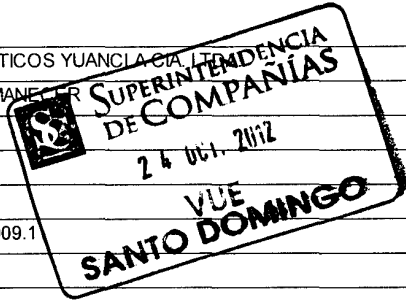 TICOS YUANCLA CIA. LTDA.
MANECER
SUPERINTENDENCIA
DE COMPAÑÍAS
24 OCT. 2012
VUE
SANTO DOMINGO
09.1